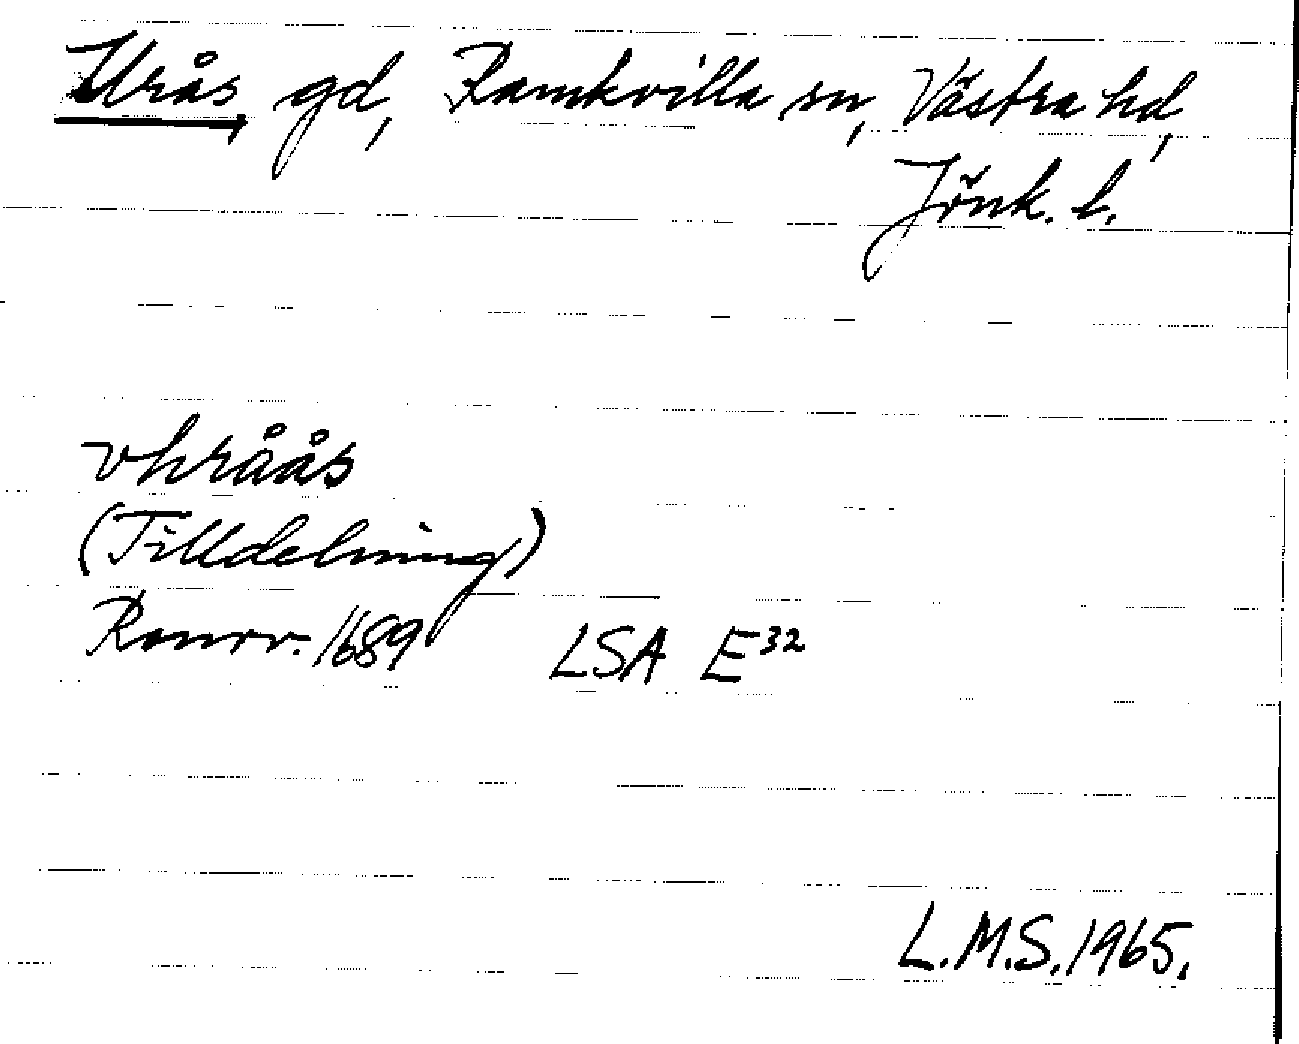 Urås, gd, Ramkvilla sn, Västra hd,
Jönk. l.
vhråås
(Tilldelning)
Ransv. 1689 LSA E32
L.M.S. 1965.